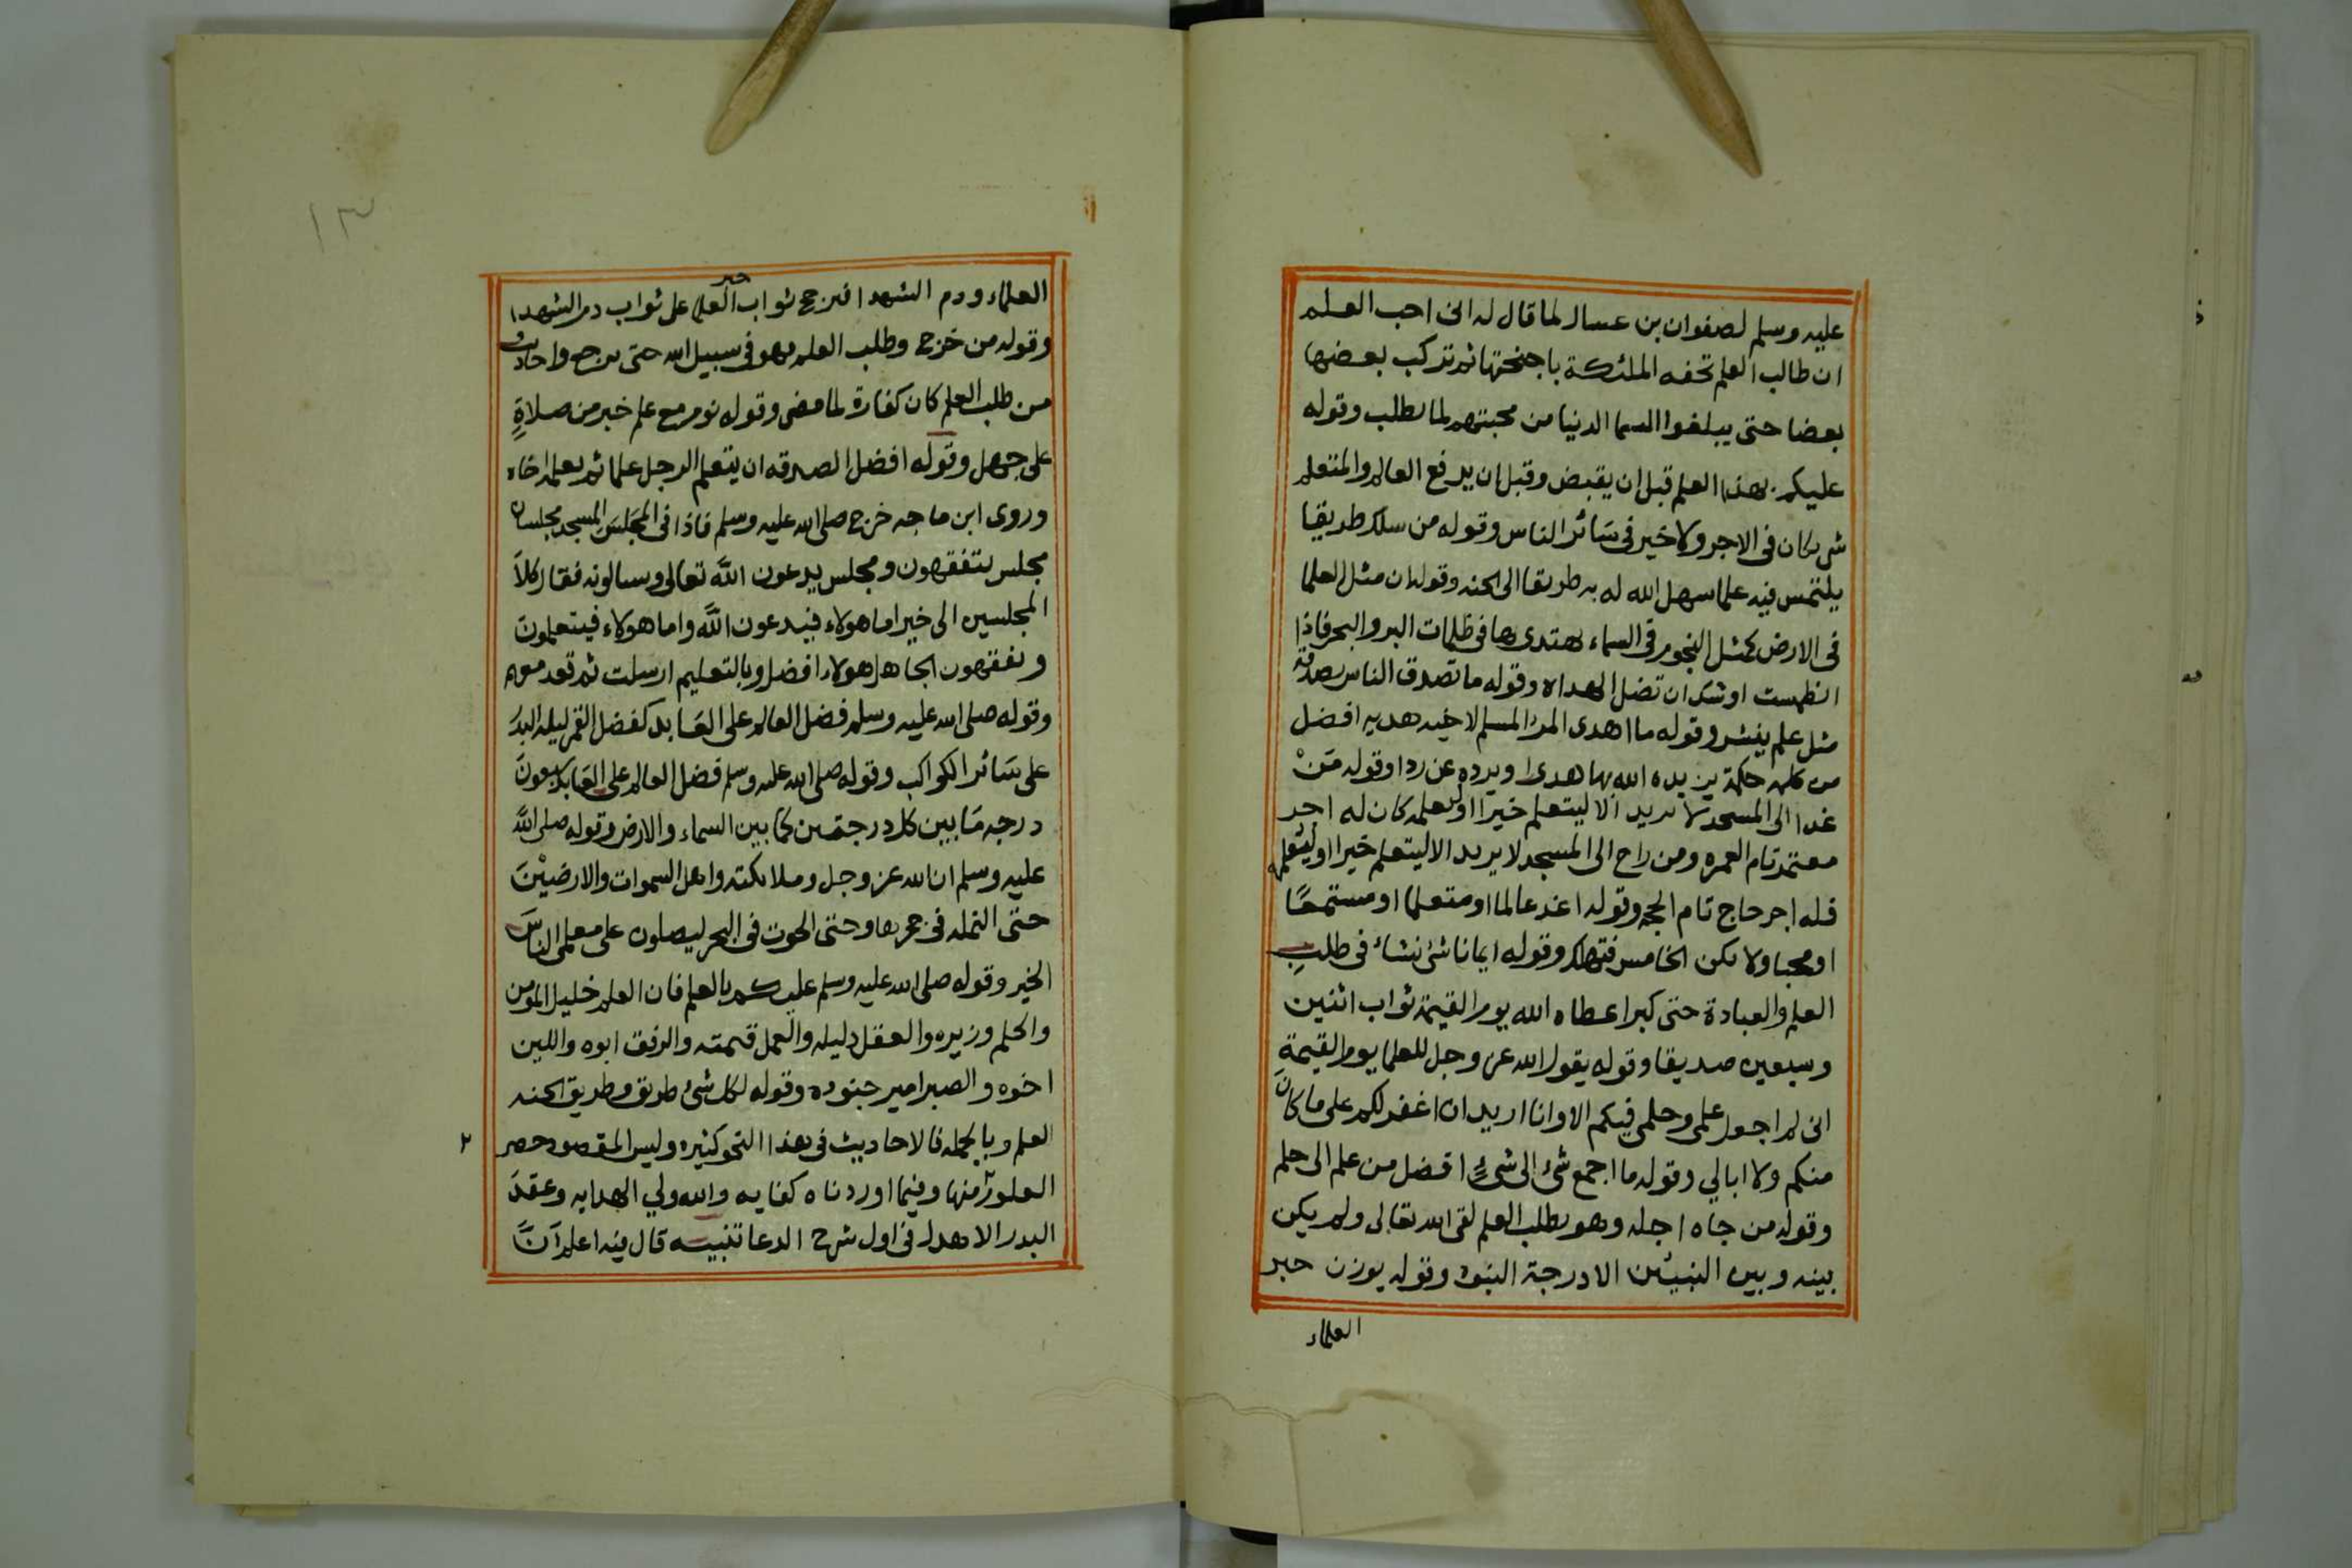 عليه وسلم لصفوان بن عسال لما قال له انى احب العلم
ان طالب العلم تحفه الملئكة باجنحتها ثم تركب بعضها
بعضا حتى يبلغوا السما الدنيا من محبتهم لما يطلب وقوله
عليكم بهذا العلم قبل ان يقبض وقبل ان يرفع العالم والمتعلم
شريكان فى الاجر ولا خير فى سَائر الناس وقوله من سلك طريقا
يلتمس فيه علما سهل الله له به طريقا الى الجنه وقوله ان مثل العلما
فى الارض كمثل النجوم فى السماء يهتدى بها فى ظلمات البر والبحر فاذا
انطمست اوشك ان تضل الهداه وقوله ما تصدق الناس بصدقة
مثل علم ينشر وقوله ما اهدى المرء المسلم لاخيه هديه افضل
من كلمه حكمة يزيده الله بها هدى او يرده عن ردا وقوله مَنْ
غدا الى المسجد لا يريد الا ليتعلم خيرا او ليعلمه كان له اجر
معتمر تام العمره ومن راح الى المسجد لا يريد الا ليتعلم خيرا او ليعلمه
فله اجر حاج تام الحجه وقوله اغد عالما او متعلما او مستمعًا
او محبا ولا تكن الخامس فتهلك وقوله ايما ناشئ نشاء فى طلبِ
العلم والعبادة حتى كبر اعطاه الله يوم القيمة ثواب اثنين
وسبعين صديقا وقوله يقول الله عز وجل للعلما يوم القيمةِ
انى لم اجعل علمى وحلمى فيكم الا وانا اريد ان اغفر لكم على ما كانَ
منكم ولا ابالي وقوله ما اجمع شئ الى شئٍ افضل من علم الى حلم
وقوله من جاه اجله وهو يطلب العلم لقى الله تعالى ولم يكن
بينه وبين النبيين الا درجة النبوه وقوله يوزن حبر
العلماء
١٣
العلماء ودم الشهدا فيرجح ثواب حبر العلما على ثواب دم الشهدا
وقوله من خرج وطلب العلم فهو فى سبيل الله حتى يرجع واحاديث
من طلب العلم كان كفارة لما مضى وقوله نوم مع علم خير من صلاةٍ
على جهل وقوله افضل الصدقه ان يتعلم الرجل علما ثم يعلمه اخاه
وروى ابن ماجه خرج صلى الله عليه وسلم فاذا فى المجَلسَ المسجد مجلسان
مجلس يتفقهون ومجلس يدعون اللَّه تعالى وسالونه فقال كلاَ
المجلسين الى خير اما هولاء فيدعون اللَّه واما هولاء فيتعلمونَ
ويفقهون الجاهل هولاء افضل وبالتعليم ارسلت ثم قعد معهم
وقوله صلى الله عليه وسلم فضل العالم على العَابد كفضل القمر ليله البدرَ
على سَائر الكواكب وقوله صلى الله عليه وسلم فضل العالم على العَابد سبعونَ
درجه مَا بين كل درجتين كما بين السماء والارض وقوله صلى اللَّه
عليه وسلم ان الله عز وجل وملائكته واهل السموات والارضيْنَ
حتى النمله فى جحرها وحتى الحوت فى البحر ليصلون على معلمى الناسَ
الخير وقوله صلى الله عليه وسلم عليكم بالعلم فان العلم خليل المومن
والحلم وزيره والعقل دليله والعمل قيمته والرفق ابوه واللين
اخوه والصبر امير جنوده وقوله لكل شئ طريق وطريق الجنه
العلم وبالجمله فالاحاديث فى هذا النحو كثيره وليس المقصود حصر
٢
منها وفيما اوردناه كفايه والله ولي الهدايه وعقدَ
البدر الاهدل فى اول شرح الدعا تنبيه قال فيه اعلم اَنَّ